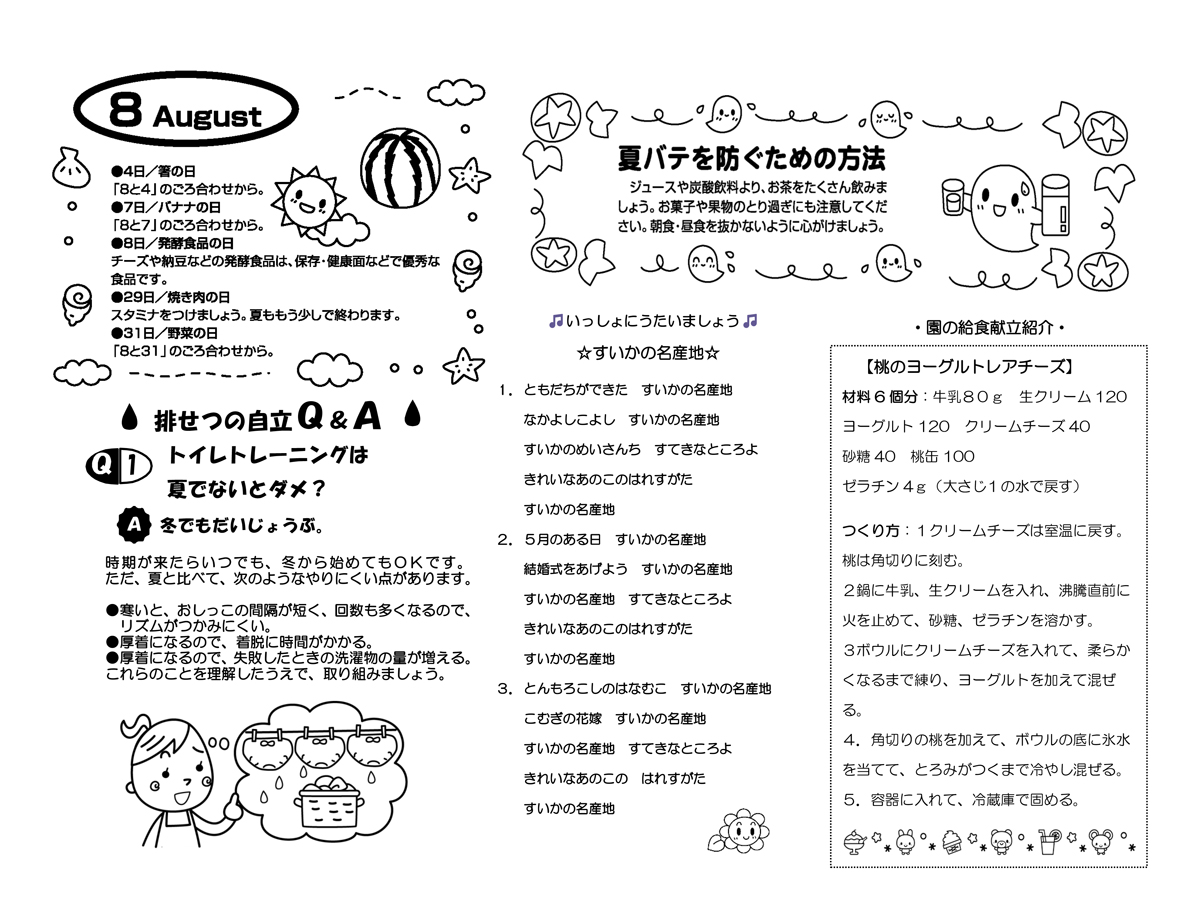 8 August
●4日／箸の日
「8と4」のごろ合わせから。
●7日／バナナの日
「8と7」のごろ合わせから。
●8日／発酵食品の日
チーズや納豆などの発酵食品は、保存・健康面などで優秀な
食品です。
●29日／焼き肉の日
スタミナをつけましょう。夏ももう少しで終わります。
●31日／野菜の日
「8と31」のごろ合わせから。
排せつの自立Q&A
Q1 トイレトレーニングは
夏でないとダメ？
A 冬でもだいじょうぶ。
時期が来たらいつでも、冬から始めてもＯＫです。
ただ、夏と比べて、次のようなやりにくい点があります。
●寒いと、おしっこの間隔が短く、回数も多くなるので、
リズムがつかみにくい。
●厚着になるので、着脱に時間がかかる。
●厚着になるので、失敗したときの洗濯物の量が増える。
これらのことを理解したうえで、取り組みましょう。
夏バテを防ぐための方法
ジュースや炭酸飲料より、お茶をたくさん飲みま
しょう。お菓子や果物のとり過ぎにも注意してくだ
さい。朝食・昼食を抜かないように心がけましょう。
🎵いっしょにうたいましょう🎵
☆すいかの名産地☆
1．ともだちができた　すいかの名産地
なかよしこよし　すいかの名産地
すいかのめいさんち　すてきなところよ
きれいなあのこのはれすがた
すいかの名産地
2．５月のある日　すいかの名産地
結婚式をあげよう　すいかの名産地
すいかの名産地　すてきなところよ
きれいなあのこのはれすがた
すいかの名産地
3．とんもろこしのはなむこ　すいかの名産地
こむぎの花嫁　すいかの名産地
すいかの名産地　すてきなところよ
きれいなあのこの　はれすがた
すいかの名産地
・園の給食献立紹介・
【桃のヨーグルトレアチーズ】
材料６個分：牛乳８０ｇ　生クリーム120
ヨーグルト120　クリームチーズ40
砂糖40　桃缶100
ゼラチン4ｇ（大さじ１の水で戻す）
つくり方：１クリームチーズは室温に戻す。
桃は角切りに刻む。
２鍋に牛乳、生クリームを入れ、沸騰直前に
火を止めて、砂糖、ゼラチンを溶かす。
３ボウルにクリームチーズを入れて、柔らか
くなるまで練り、ヨーグルトを加えて混ぜ
る。
４．角切りの桃を加えて、ボウルの底に氷水
を当てて、とろみがつくまで冷やし混ぜる。
５．容器に入れて、冷蔵庫で固める。